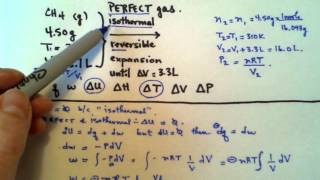 CH4 (g)
4.50g
T1 =
PERFECT gas.
isothermal
reversible
expansion
until ΔV = 3.3L
n2 = n1 = 4.50g × 1mole
16.043g
T2 = T1 = 310K
V2 = V1 + 3.3L = 16.0L
P2 = nRT
V2
q w ΔU ΔH ΔT ΔV ΔP
b/c "isothermal"
& isothermal ∴ ΔU =
dU = dq + dw but dU = 0 then dq = dw
dw = -PdV
w = ∫-PdV = ∫-nRT 1/V dV = -nRT∫1/V dV